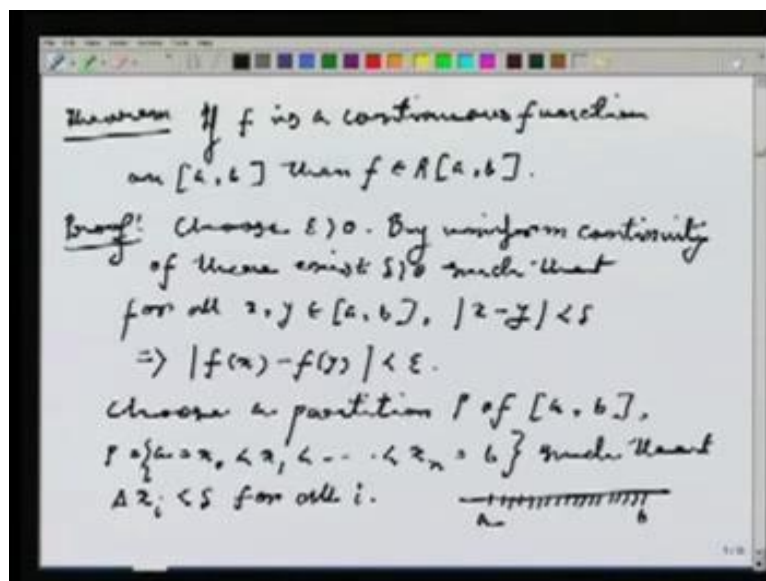 Theorem If f is a continuous function
on [a, b] then f ∈ R[a, b].
Proof: Choose ε > 0. By uniform continuity
of there exist δ > 0 such that
for all x, y ∈ [a, b], |x - y| < δ
=> |f(x) - f(y)| < ε.
Choose a partition P of [a, b],
P = {a = x₀ < x₁ < - - . < xₙ = b} such that
Δxᵢ < δ for all i.
a b